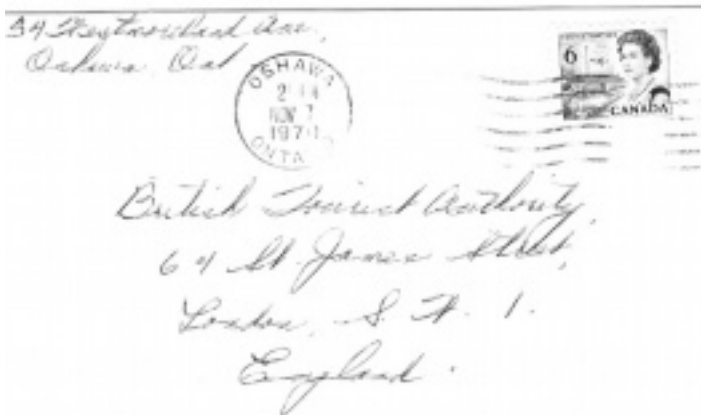 34 Ave.,
Oshawa, Ont
OSHAWA
NOV 7
197
ONTA
6
CANADA
British Tourist Authority,
64 St. James Street,
London, S. W. 1.
England.